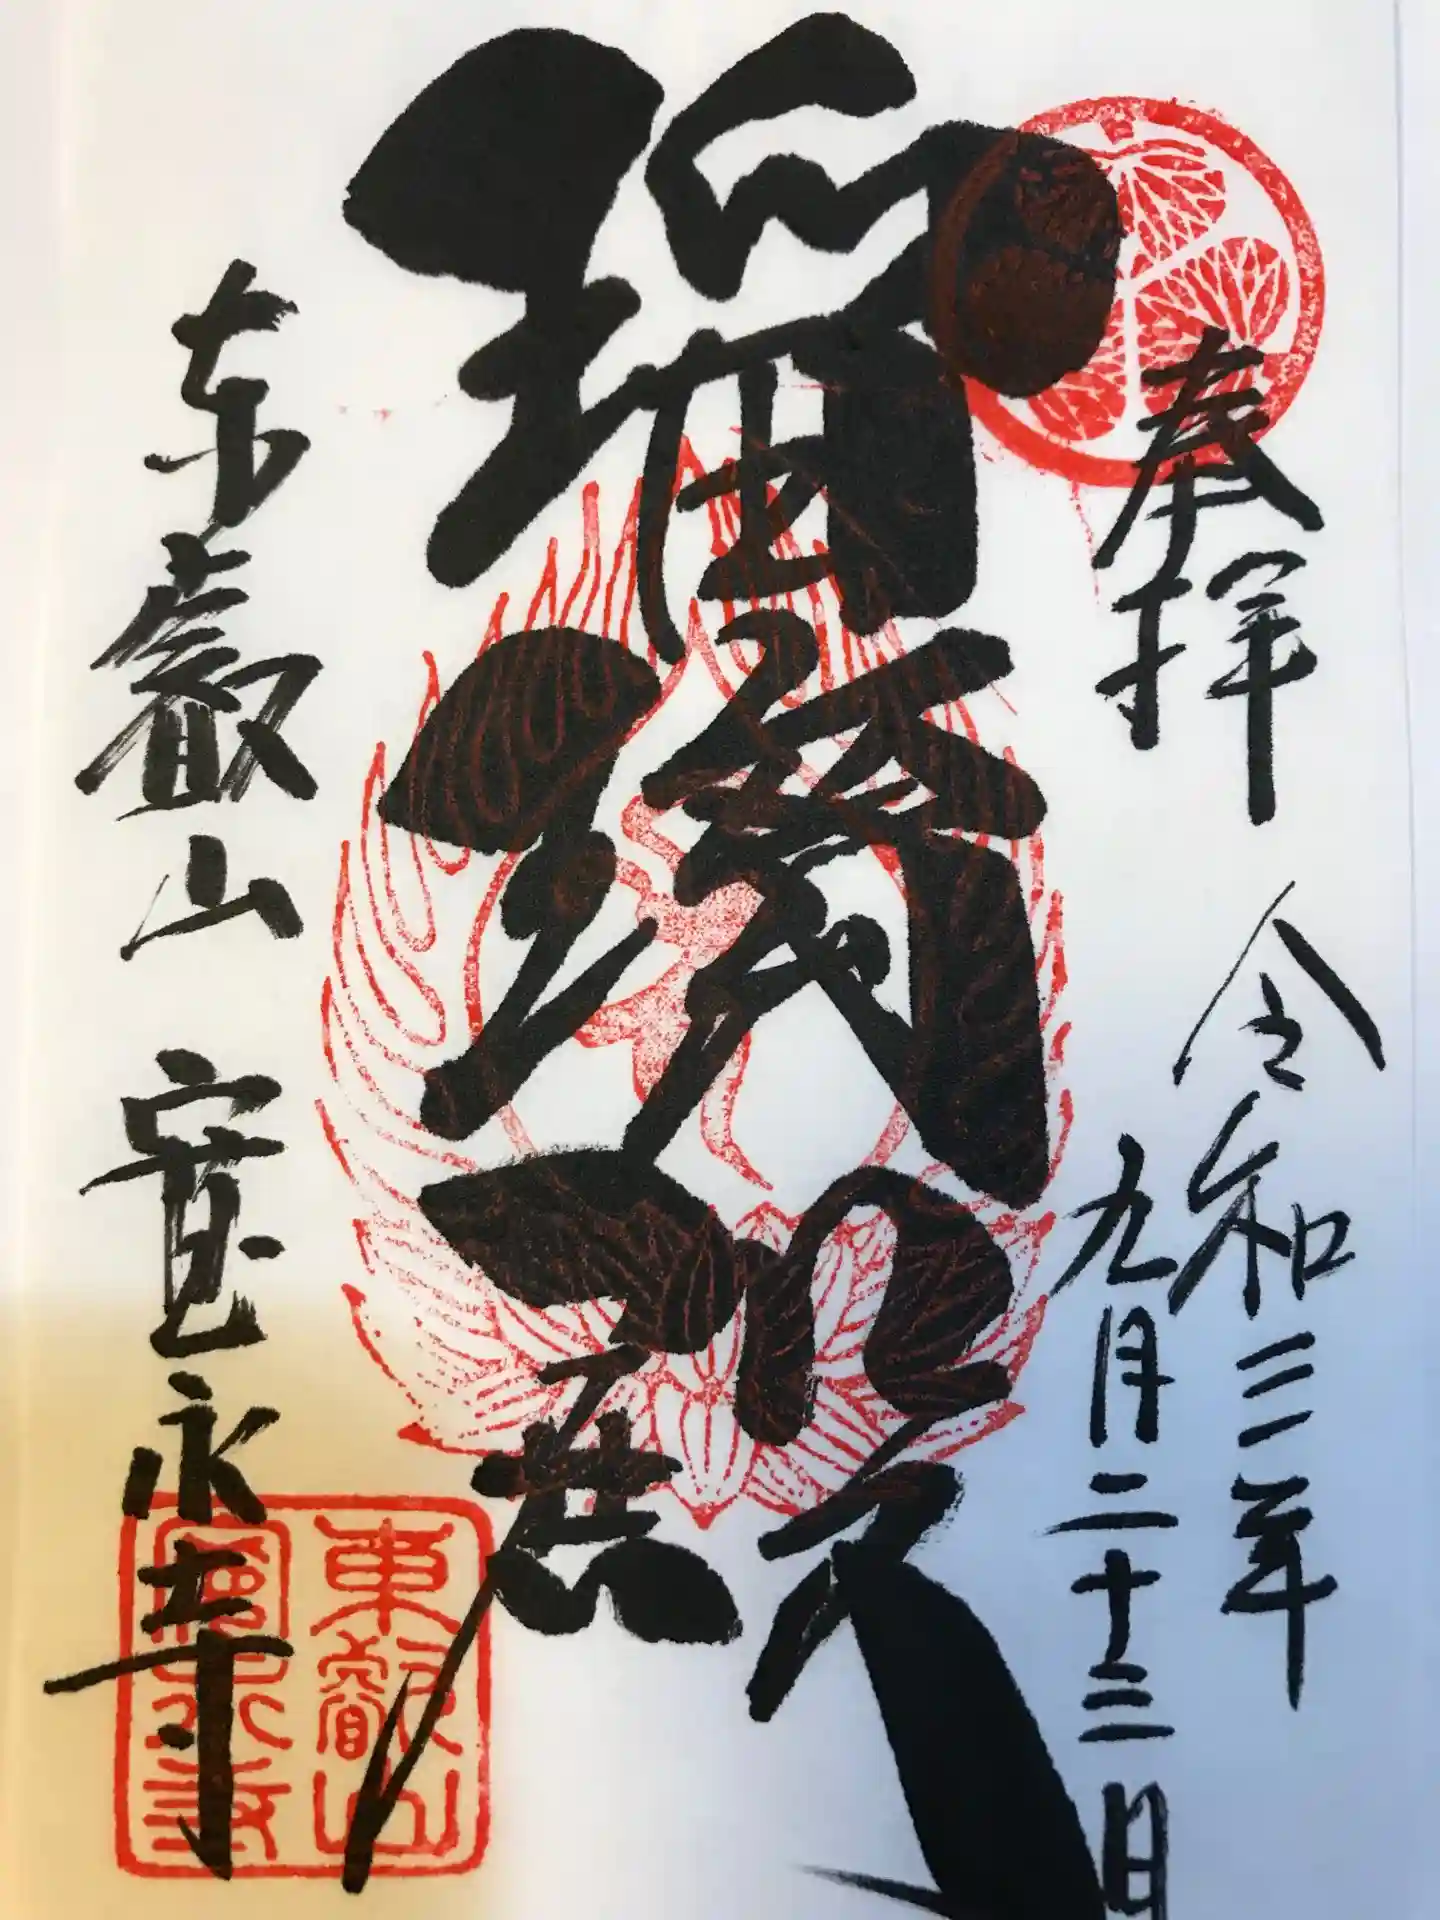 奉拝
令和三年
九月二十三日
瑠璃殿
東叡山 寛永寺
東叡山
寛永寺